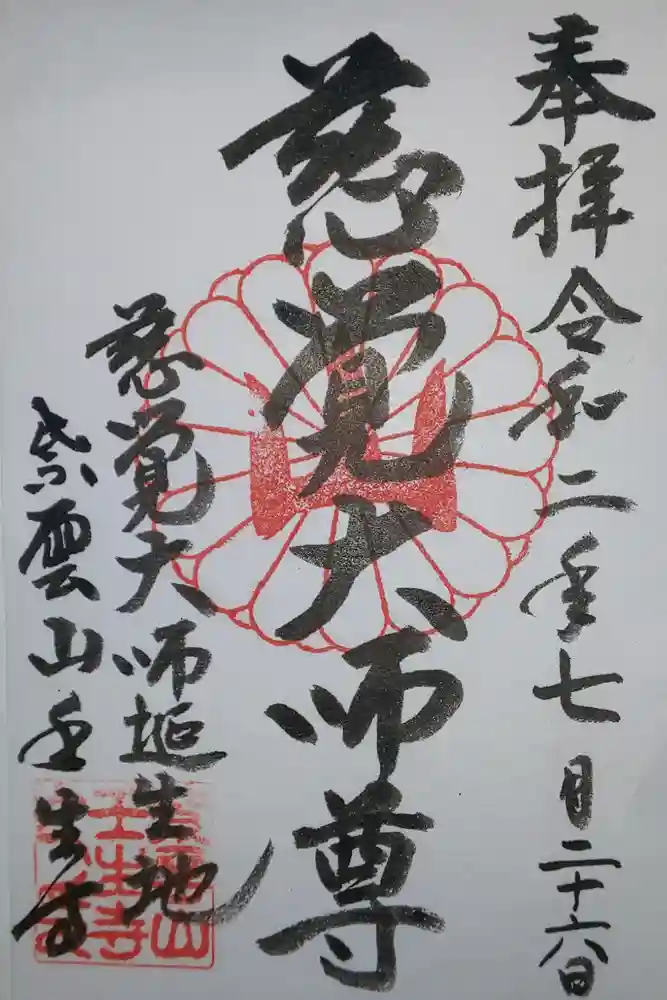 奉拝令和二年七月二十六日
慈覚大師尊
慈覚大師誕生地
紫雲山壬生寺